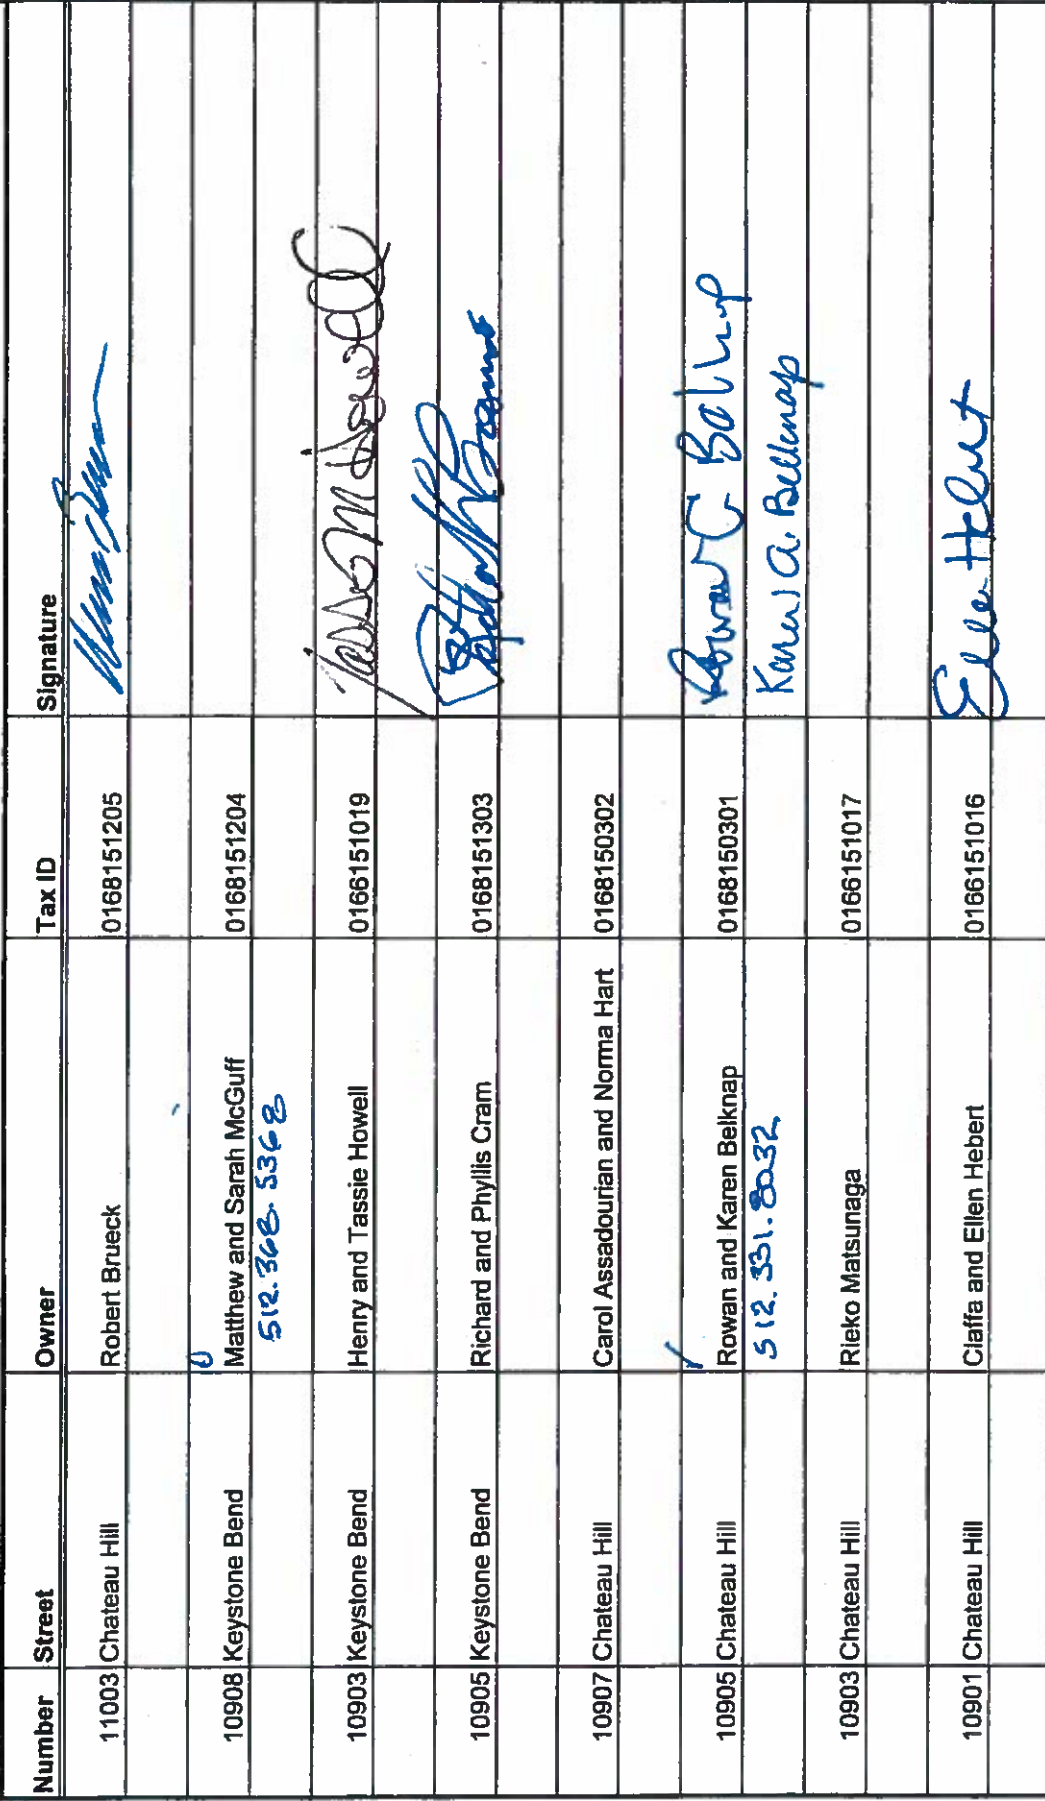 Number Street Owner Tax ID Signature
11003 Chateau Hill Robert Brueck 0168151205
10908 Keystone Bend Matthew and Sarah McGuff 0168151204
512.368.5368
10903 Keystone Bend Henry and Tassie Howell 0166151019
10905 Keystone Bend Richard and Phyllis Cram 0168151303
10907 Chateau Hill Carol Assadourian and Norma Hart 0168150302
10905 Chateau Hill Rowan and Karen Belknap 0168150301 Rowan C Belknap
512.331.8032 Karen A. Belknap
10903 Chateau Hill Rieko Matsunaga 0166151017
10901 Chateau Hill Claffa and Ellen Hebert 0166151016 Ellen Hebert